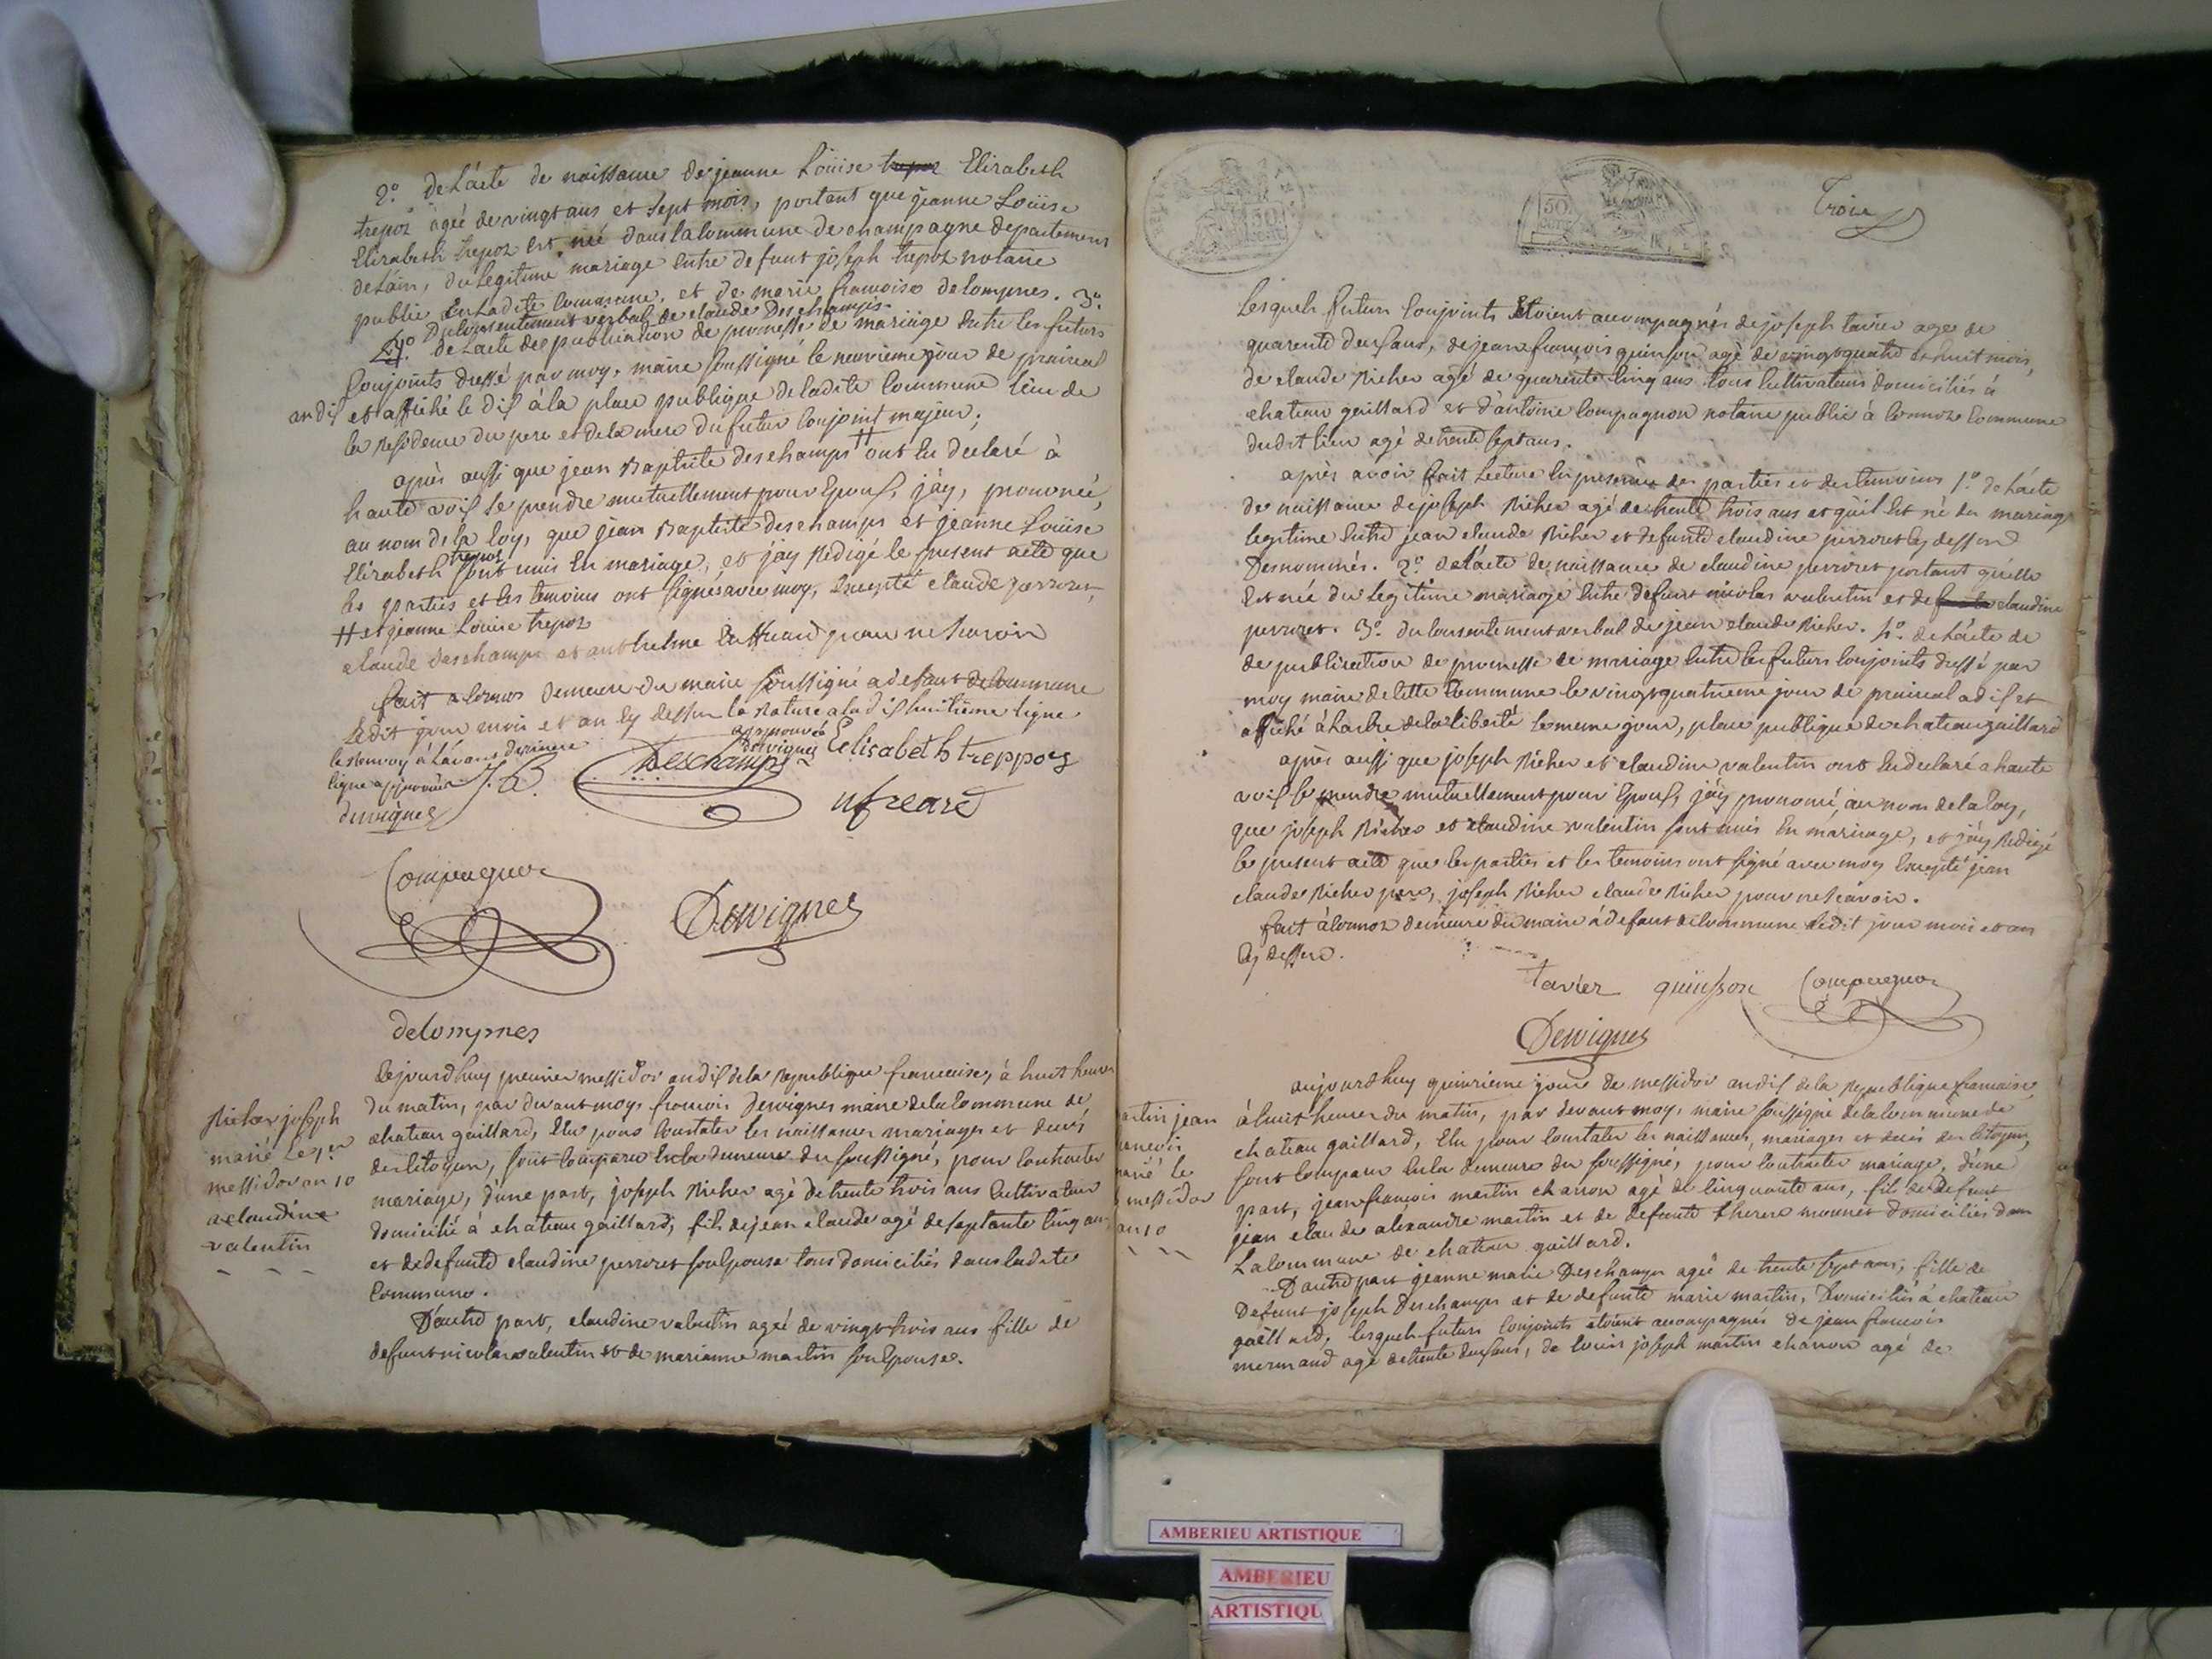 2.o de L'acte de naissance de jeanne Loüise trepoz Elizabeth
trepoz agée de vingt ans et sept mois, portant que jeanne Loüise
Elizabeth trepoz est née dans la Commune de champagne departement
de L'ain, du legitime mariage entre defunt joseph trepoz notaire
public en Ladite Commune, et de marie francoise delompnes. 3.o
Du Consentement verbal de claude Deschamps
4.o de L'acte de publication de promesse de mariage entre les futurs
Conjoints dressé par moy, maire soussigné le neuvieme jour de praireal
an dix et affiché le dix à la place publique de ladite Commune lieu de
la residence du pere et de la mere du futur Conjoint majeur;
après aussi que jean Baptiste deschamps # ont eu declaré à
haute voix se prendre mutuellement pour Epoux, j'ay, prononcé,
au nom de la loy, que jean Baptiste deschamps et jeanne Loüise
Elizabeth trepoz sont unis En mariage, et j'ay Redigé le present acte que
les parties et les temoins ont signés avec moy, Excepté claude perroset,
# et jeanne Louise trepoz
claude deschamps et anthelme pour ne savoir
fait a Cormoz Demeure du maire soussigné a defaut de Commune
Ledit jour mois et an Cy dessus la Rature a la dix huitieme ligne
approuvée
dervignes
le Renvoy à L'avant derniere
ligne approuvée
dervignes
J. B. Deschamps Eelisabeth treppoz
Compagnon
Dervignes
delompnes
Richer joseph
marié Le 1.er
messidor an 10
a claudine
valentin
Cejourd'huy premier messidor an dix de la Republique francaise, à huit heures
du matin, par devant moy, francois Dervignes maire de la Commune de
chateau gaillard, Elu pour Constater les naissances mariages et decés
des Citoyens, sont Comparu En la demeure du soussigné, pour Contracter
mariage, d'une part, joseph Richer agé de trente trois ans Cultivateur
domicilié à chateau gaillard, fils de jean claude agé de septante Cinq ans
et de defunte claudine perroset son Epouse tous domiciliés dans ladite
Commune.
D'autre part, claudine valentin agée de vingt trois ans fille de
defunt nicolas valentin et de marianne martin son Epouse.
50
50
Troise
Lesquels futurs Conjoints Etoient accompagnés de joseph tavier agé de
quarente deux ans, de jean francois quinson agé de vingt quatre et huit mois,
de claude Richer agé de quarente Cinq ans tous Cultivateurs domiciliés à
chateau gaillard et d'antoine Compagnon notaire public à Cormoz Commune
dudit lieu agé de trente sept ans.
après avoir fait Lecture En presence des parties et des temoins 1.o de L'acte
de naissance de joseph Richer agé de trente trois ans et qu'il Est né du mariage
legitime Entre jean claude Richer et defunte claudine perroset Cy dessus
Denommés. 2.o de L'acte de naissance de claudine perroset portant qu'elle
Est née du legitime mariage Entre defunt nicolas valentin et de claudine
perroset. 3.o du Consentement verbal de jean claude Richer. 4.o de L'acte de
de publication de promesse de mariage Entre les futurs Conjoints dressé par
moy maire de Cette Commune le vingt quatrieme jour de praireal a dix et
affiché à L'arbre de la liberté le meme jour, place publique de chateau gaillard
après aussi que joseph Richer et claudine valentin ont Eu declaré a haute
voix se prendre mutuellement pour Epoux, j'ay prononcé, au nom de la loy,
que joseph Richer et claudine valentin sont unis En mariage, et j'ay Redigé
le present acte que les parties et les temoins ont signé avec moy Excepté jean
claude Richer pere, joseph Richer claude Richer pour ne scavoir.
fait à Cormoz demeure du maire à defaut de Commune Ledit jour mois et an
Cy dessus.
tavier quinson Compagnon
Dervignes
martin jean
francois
marié le
messidor
an 10
aujourd'huy quinzieme jour de messidor an dix de la Republique francaise,
à huit heures du matin, par devant moy, maire soussigné de la Commune de
chateau gaillard, Elu pour Constater les naissances, mariages et decés des Citoyens,
sont Comparu En la demeure du soussigné, pour Contracter mariage, d'une
part, jean francois martin chanon agé de Cinquante ans, fils de defunt
jean claude alexandre martin et de defunte therese monnet domiciliés dans
La Commune de chateau gaillard.
D'autre part jeanne marie Deschamps agée de trente sept ans, fille de
Defunt joseph Deschamps et de defunte marie martin, Domiciliés à chateau
gaillard. lesquels futurs Conjoints etoient accompagnés de jean francois
mermand agé de trente deux ans, de louis joseph martin chanon agé de
AMBERIEU ARTISTIQUE
AMBERIEU
ARTISTIQU